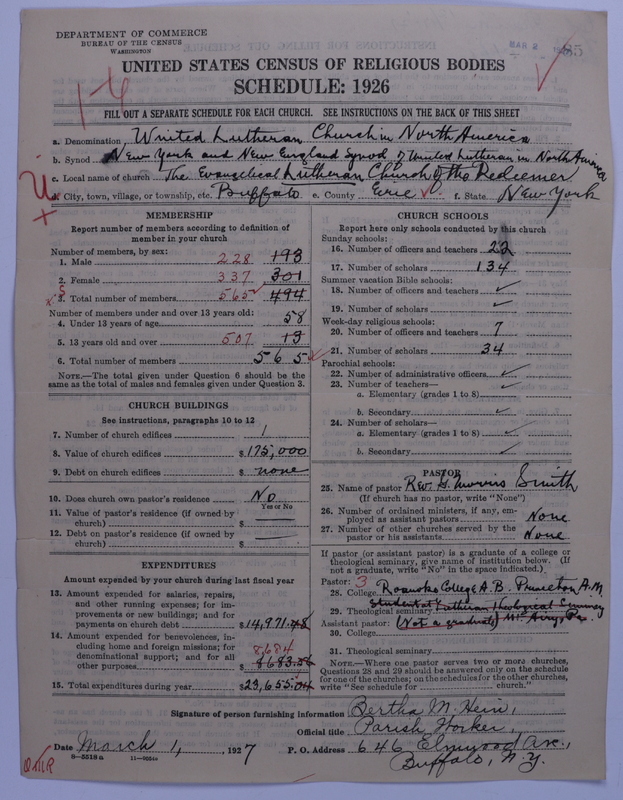 DEPARTMENT OF COMMERCE
BUREAU OF THE CENSUS
WASHINGTON
MAR 2
85
UNITED STATES CENSUS OF RELIGIOUS BODIES
SCHEDULE: 1926
1-6
FILL OUT A SEPARATE SCHEDULE FOR EACH CHURCH. SEE INSTRUCTIONS ON THE BACK OF THIS SHEET
a. Denomination United Lutheran Church in North America
b. Synod New York and New England Synod of United Lutheran in North America
c. Local name of church The Evangelical Lutheran Church of the Redeemer
d. City, town, village, or township, etc. Buffalo e. County Erie f. State New York
MEMBERSHIP
Report number of members according to definition of
member in your church
Number of members, by sex:
1. Male 228 193
2. Female 337 301
3. Total number of members 565 494
Number of members under and over 13 years old:
4. Under 13 years of age 58
5. 13 years old and over 507 13
6. Total number of members 565
NOTE.—The total given under Question 6 should be the
same as the total of males and females given under Question 3.
CHURCH BUILDINGS
See instructions, paragraphs 10 to 12
7. Number of church edifices 1
8. Value of church edifices $175,000
9. Debt on church edifices $ none
10. Does church own pastor's residence No
Yes or No
11. Value of pastor's residence (if owned by
church) $
12. Debt on pastor's residence (if owned by
church) $
EXPENDITURES
Amount expended by your church during last fiscal year
13. Amount expended for salaries, repairs,
and other running expenses; for im-
provements or new buildings; and for
payments on church debt $14,971.48
14. Amount expended for benevolences, in-
cluding home and foreign missions; for
denominational support; and for all
other purposes 8,684 $8683.56
15. Total expenditures during year $23,655.04
CHURCH SCHOOLS
Report here only schools conducted by this church
Sunday schools:
16. Number of officers and teachers 22
17. Number of scholars 134
Summer vacation Bible schools:
18. Number of officers and teachers
19. Number of scholars
Week-day religious schools:
20. Number of officers and teachers 7
21. Number of scholars 34
Parochial schools:
22. Number of administrative officers
23. Number of teachers—
a. Elementary (grades 1 to 8)
b. Secondary
24. Number of scholars—
a. Elementary (grades 1 to 8)
b. Secondary
PASTOR
25. Name of pastor Rev. S. Morris Smith
(If church has no pastor, write "None")
26. Number of ordained ministers, if any, em-
ployed as assistant pastors None
27. Number of other churches served by the
pastor or his assistants None
If pastor (or assistant pastor) is a graduate of a college or
theological seminary, give name of institution below. (If
not a graduate, write "No" in the space indicated.)
Pastor: 3
28. College Roanoke College A.B. Princeton A.M.
Student at Lutheran Theological Seminary
29. Theological seminary
Assistant pastor: (Not a graduate) Mt. Airy, Pa.
30. College
31. Theological seminary
NOTE.—Where one pastor serves two or more churches,
Questions 28 and 29 should be answered only on the schedule
for one of the churches; on the schedules for the other churches,
write "See schedule for church."
Signature of person furnishing information Bertha M. Hein,
Official title Parish Worker,
Date March 1, 1927 P. O. Address 646 Elmwood Ave.,
Buffalo, N.Y.
8-5518a